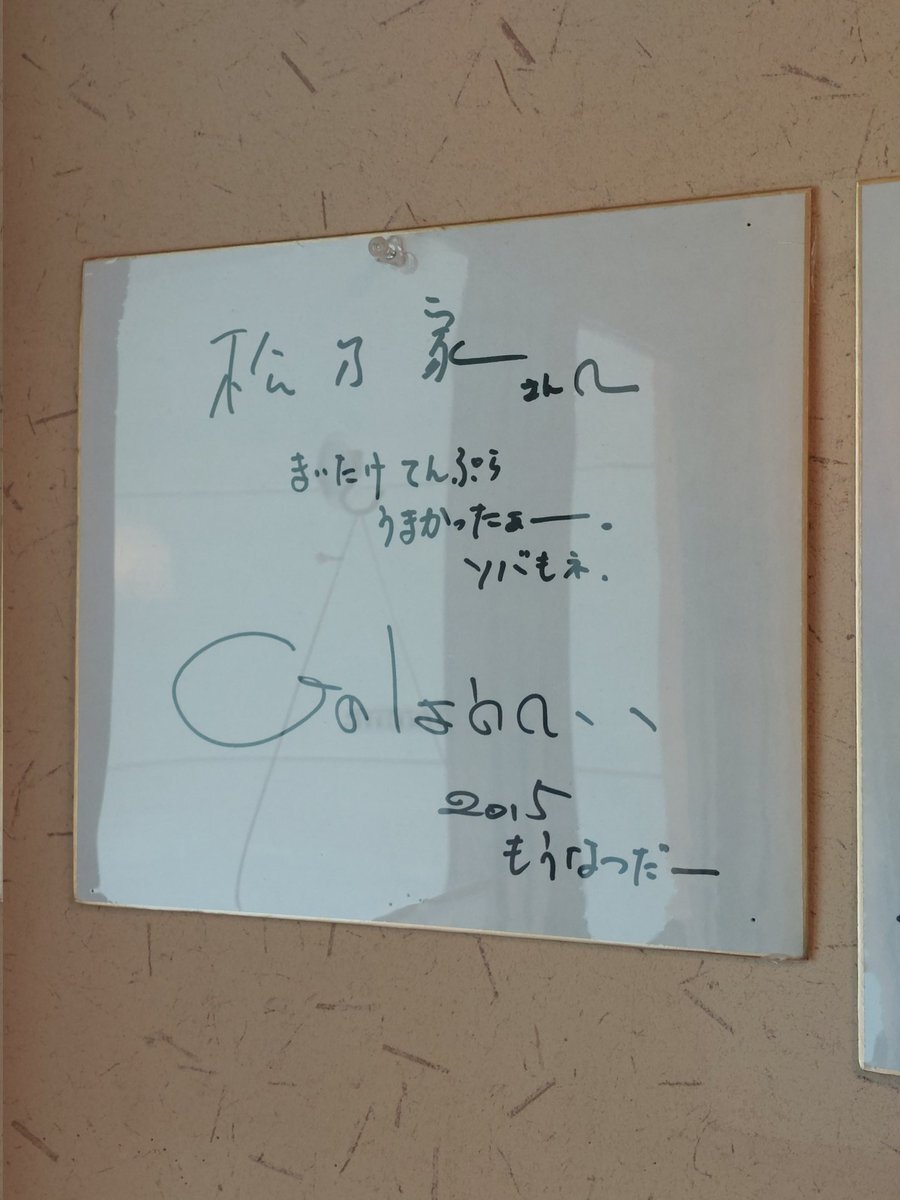 松乃家さんへ
まいたけ てんぷら
うまかったぁー.
ソバもネ.
2015
もうなつだー